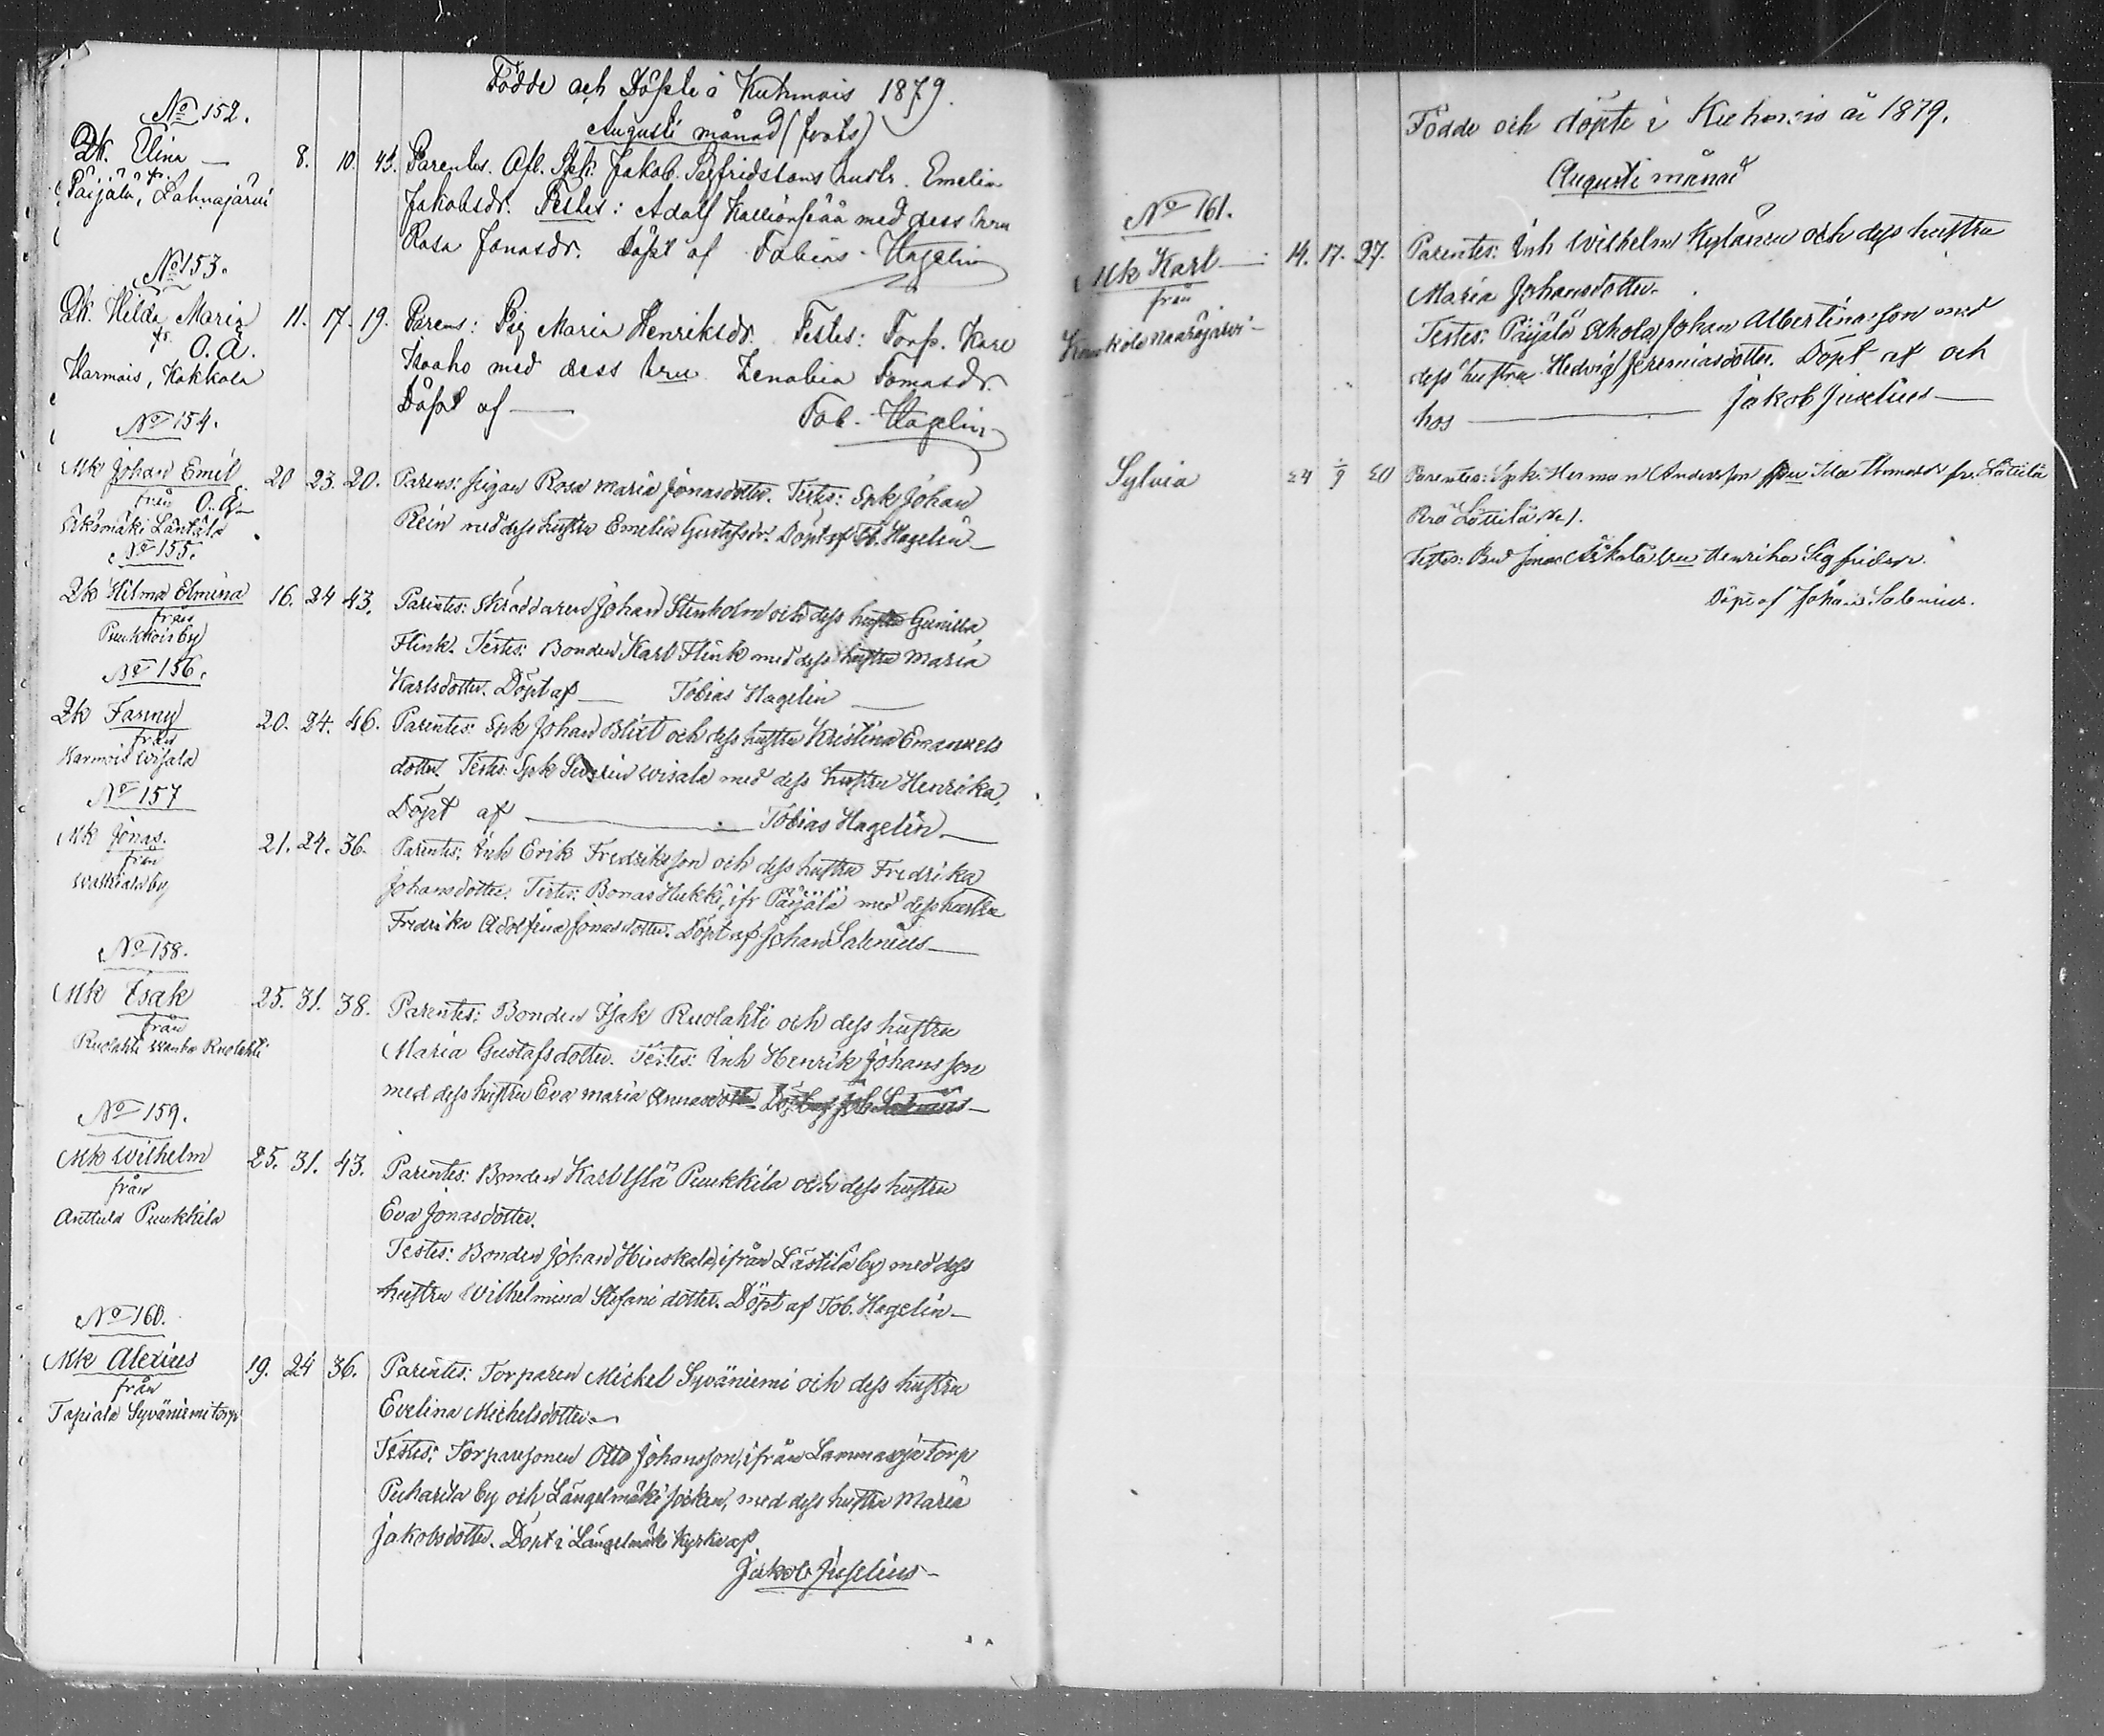 Födde och Döpte i Kuhmois 1879.
Augusti månad (forts)
No 152.
Qk. Elina —
fr.
Päijälä, Lahnajärvi
8. 10. 43. Parentes. Afl. Spk. Jakob Sigfridssons hustr. Emelia
Jakobsdr. Testes: Adolf med dess hru
Rosa Jonasdr. Döpt af Tobias Hagelin
No 153.
Qk. Hilda Maria
fr. O. Ä.
Harmois, Kokkola
11. 17. 19. Parens: Pig Maria Henriksdr. Testes: Torp. Karl
Isoaho med dess hru Zenobia Tomasdr.
Döpt af — Tob. Hagelin
No 154.
Mk Johan Emil
från O. Ä.
Lästilä
20 23. 20. Parens: Pigan Rosa Maria Jonasdotter. Testes: Spk Johan
Rein med dess hustru Emelia Gustafsdr. Döpt af Tb. Hagelin —
No 155.
Qk Hilma Elmina
från
Puukkois by
16. 24 43. Parentes: Skräddaren Johan Stenholm och dess hustru Gunilla
Flink. Testes: Bonden Karl Flink med dess hustru Maria
Karlsdotter. Döpt af — Tobias Hagelin —
No 156.
Qk Fanny
från
Harmois Wisala
20. 24. 46. Parentes: Spk Johan Blixt och dess hustru Kristina Emanuels
dotter. Testes: Spk Severin Wisala med dess hustru Henrika,
Döpt af — Tobias Hagelin. —
No 157
Mk Jonas.
från
by
21. 24. 36. Parentes: Inh Erik Fredriksson och dess hustru Fredrika
Johansdotter. Testes: Bonas Hukki, ifr Päijälä med dess hustru
Fredrika Adolfina Jonasdotter. Döpt af Johan Salenius —
No 158.
Mk Isak
från
Ruolahti Wanha Ruolahti
25. 31. 38. Parentes: Bonden Isak Ruolahti och dess hustru
Maria Gustafsdotter. Testes: Inh Henrik Johansson
med dess hustru Eva Maria Annasdotter Döpt af Joh. Salenius —
No 159.
Mk Wilhelm
från
Anttula Puukkila
25. 31. 43. Parentes: Bonden Karl Ylä Puukkila och dess hustru
Eva Jonasdotter.
Testes: Bonden Johan ifrån Lästilä by med dess
hustru Wilhelmina Stefani dotter. Döpt af Tob. Hagelin —
No 160.
Mk Alexius
från
Tapiala Syväniemi torp
19. 24 36. Parentes: Torparen Mickel Syväniemi och dess hustru
Evelina Michelsdotter.
Testes: Torparesonen Otto Johansson, ifrån Lammasoja torp
Puharila by och Längelmäki socken, med dess hustru Maria
Jakobsdotter. Döpt i Längelmäki kyrka af
Jakob Juselius —
Födde och döpte i Kuhmois år 1879.
Augusti månad
No 161.
Mk Karl —
från
14. 17. 27. Parentes: Inh Wilhelm Kylänen och dess hustru
Maria Johansdotter.
Testes: Päijälä Johan Albertinasson med
dess hustru Hedvig Jeremiasdotter. Döpt af och
hos — Jakob Juselius —
Sylvia
24 1/9 20 Parentes: Spk. Herman Andersson hru Ida Thomasdr fr. Lästilä
No 1.
Testes: Bnd Jonas hru Henrika Sigfridsdr.
Döpt af Johan Salenius.